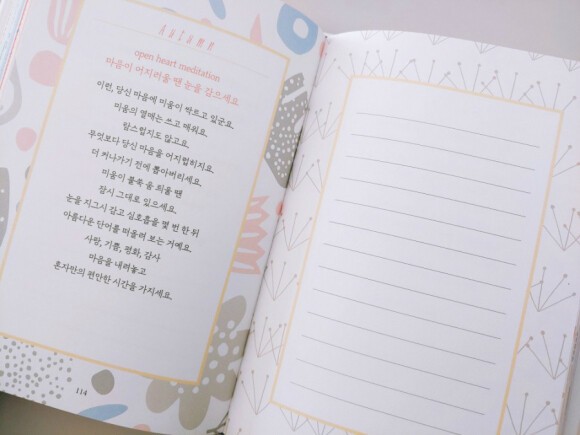 AUTUMN
open heart meditation
마음이 어지러울 땐 눈을 감으세요
이런, 당신 마음에 미움이 싹트고 있군요.
미움의 열매는 쓰고 매워요.
탐스럽지도 않고요.
무엇보다 당신 마음을 어지럽히지요.
더 커나가기 전에 뽑아버리세요.
미움이 불쑥 올 최음 땐
잠시 그대로 있으세요.
눈을 지그시 감고 심호흡을 몇 번 한 뒤
아름다운 단어를 떠올려 보는 거예요.
사랑, 기쁨, 평화, 감사
마음을 내려놓고
혼자만의 편안한 시간을 가지세요.
114